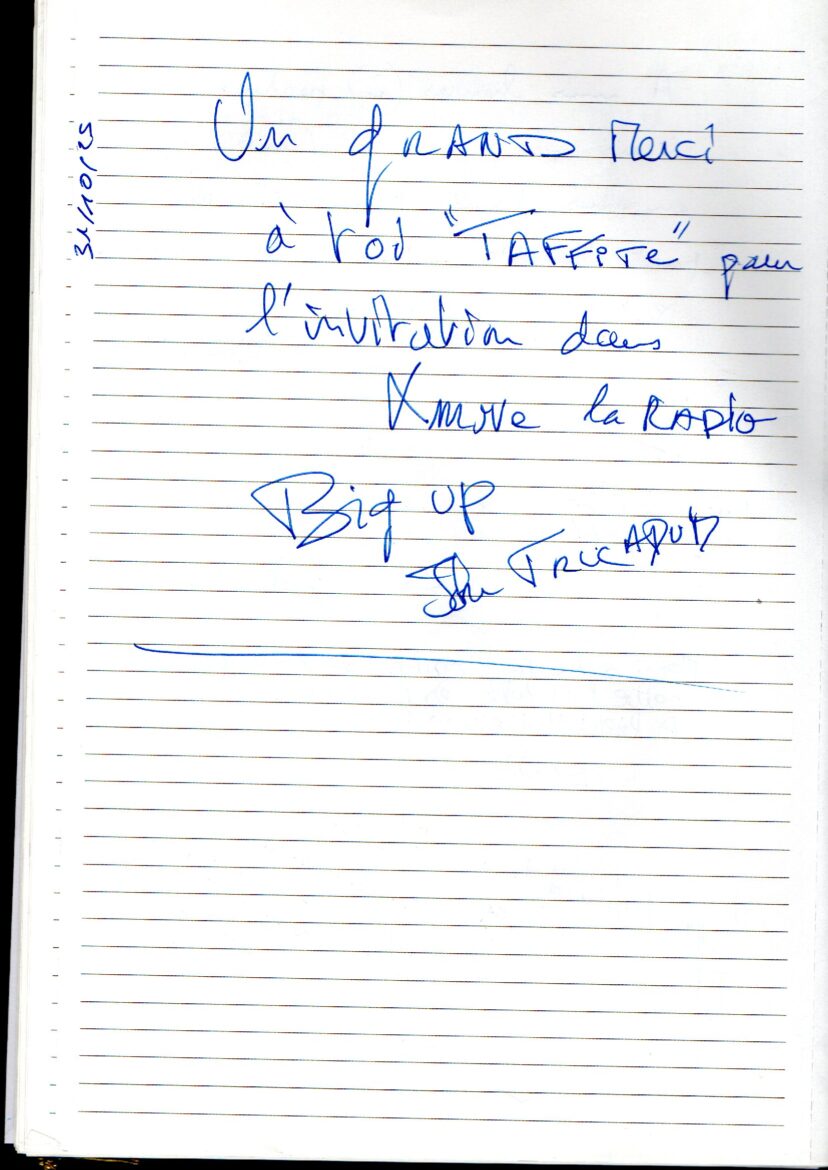 31/10/25
Un GRAND Merci
à Rod "TAFFiTe" pour
l'invitation dans
Xmove la RADIO
Big up
John TRUC